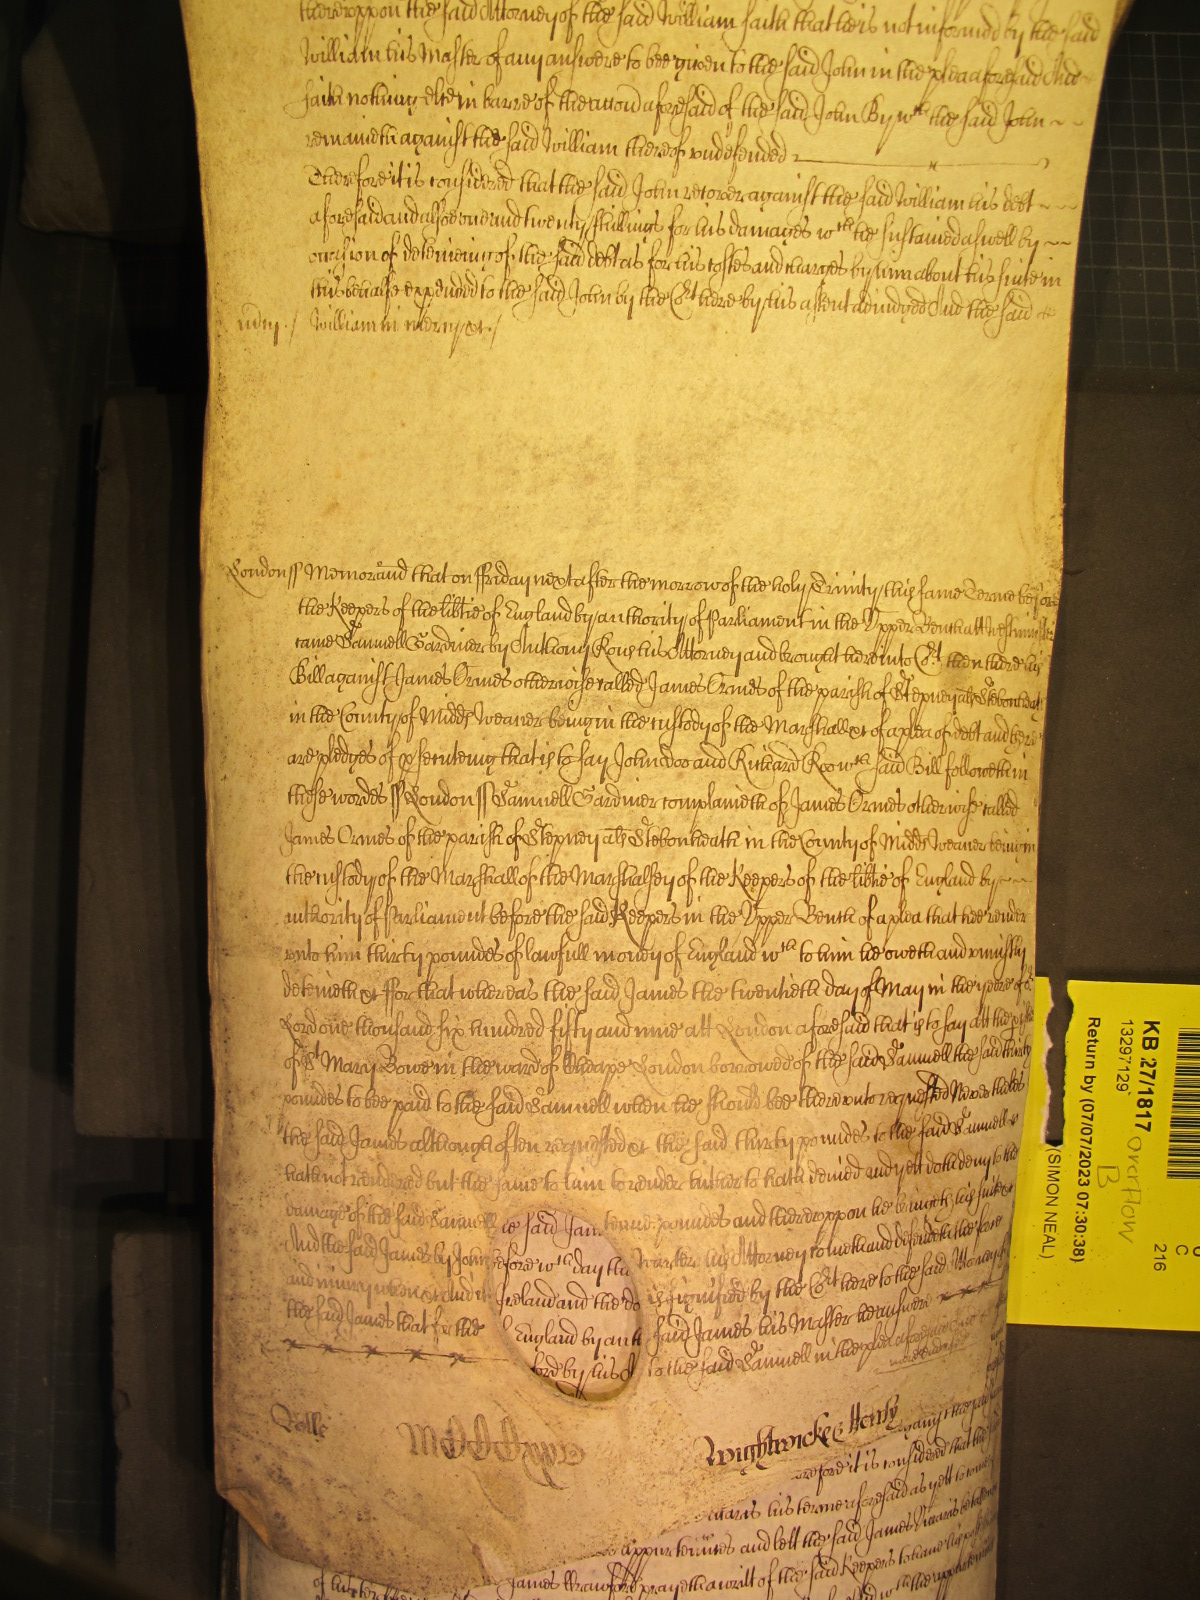 thereuppon the said Attorney of the said William saith that he is not informed by the said
William his Master of any answere to bee given to the said John in the plea aforesaid And
saith nothing else in barre of the accon aforesaid of the said John By wch the said John
remaineth against the said William thereof undefended
Therefore it is considered that the said John recover against the said William his debt
aforesaid and alsoe one and twenty shillings for his damages wch he sustained aswell by
occasion of deteineing of the said debt as for his costes and charges by him about his suite in
this behalfe expended to the said John by the Cort here by his assent adiudged And the said
William in mercy &c
London ss Memorand that on ffriday next after the morrow of the holy Trinity this same Terme before
the Keepers of the libtie of England by authority of Parliament in the Upper Bench att Westminster
came Samuell Gardiner by Anthony Rous his Attorney and brought here into Cort then there his
Bill against James Ormes otherwise called James Ormes of the parish of Stepney als Stebonheath
in the County of Midds Weaver being in the custody of the Marshall &c of a plea of debt and there
are pledges of psecuteing that is to say John doo and Richard Roo wch said Bill followeth in
these wordes ss London ss Samuell Gardiner complaineth of James Ormes otherwise called
James Ormes of the parish of Stepney als Stebonheath in the County of Midds Weaver being in
the custody of the Marshall of the Marshalsey of the Keepers of the libtie of England by
authority of Parliament before the said Keepers in the Upper Bench of a plea that hee render
unto him thirty poundes of lawfull money of England wch to him he oweth and uniustly
deteineth &c ffor that whereas the said James the twentieth day of May in the yeere of or
Lord one thousand six hundred fifty and nine att London aforesaid that is to say att the pish
of St Mary Bowe in the ward of Cheape London borrowed of the said Samuell the said thirty
poundes to bee paid to the said Samuell when he should bee thereunto requested Neverthelesse
the said James although often requested &c the said thirty poundes to the said Samuell
hath not rendered but the same to him to render hitherto hath denied and yet doth deny to the
damage of the said Samuell tenne poundes and thereuppon he bringeth his suite &c
And the said James by John Warter his Attorney cometh and defendeth the force
and iniury when &c And it is signified by the Cort here to the said Attorney of
the said James that for the said James his Master he answere
to the said Samuell in the plea aforesaid
ce said Jam
efore wch day th
Ireland and the do
England by auth
lord by his
Rolle
Wightwicke & Henly
against the
refore it is considered that the
his terme aforesaid as yett to come
appurtennces and lett the said James
James Crawford prayeth a writt of the said Keepers to have his
KB 27/1817
13297129
Return by (07/07/2023 07:30:38)
(SIMON NEAL)
overflow
B
C
216